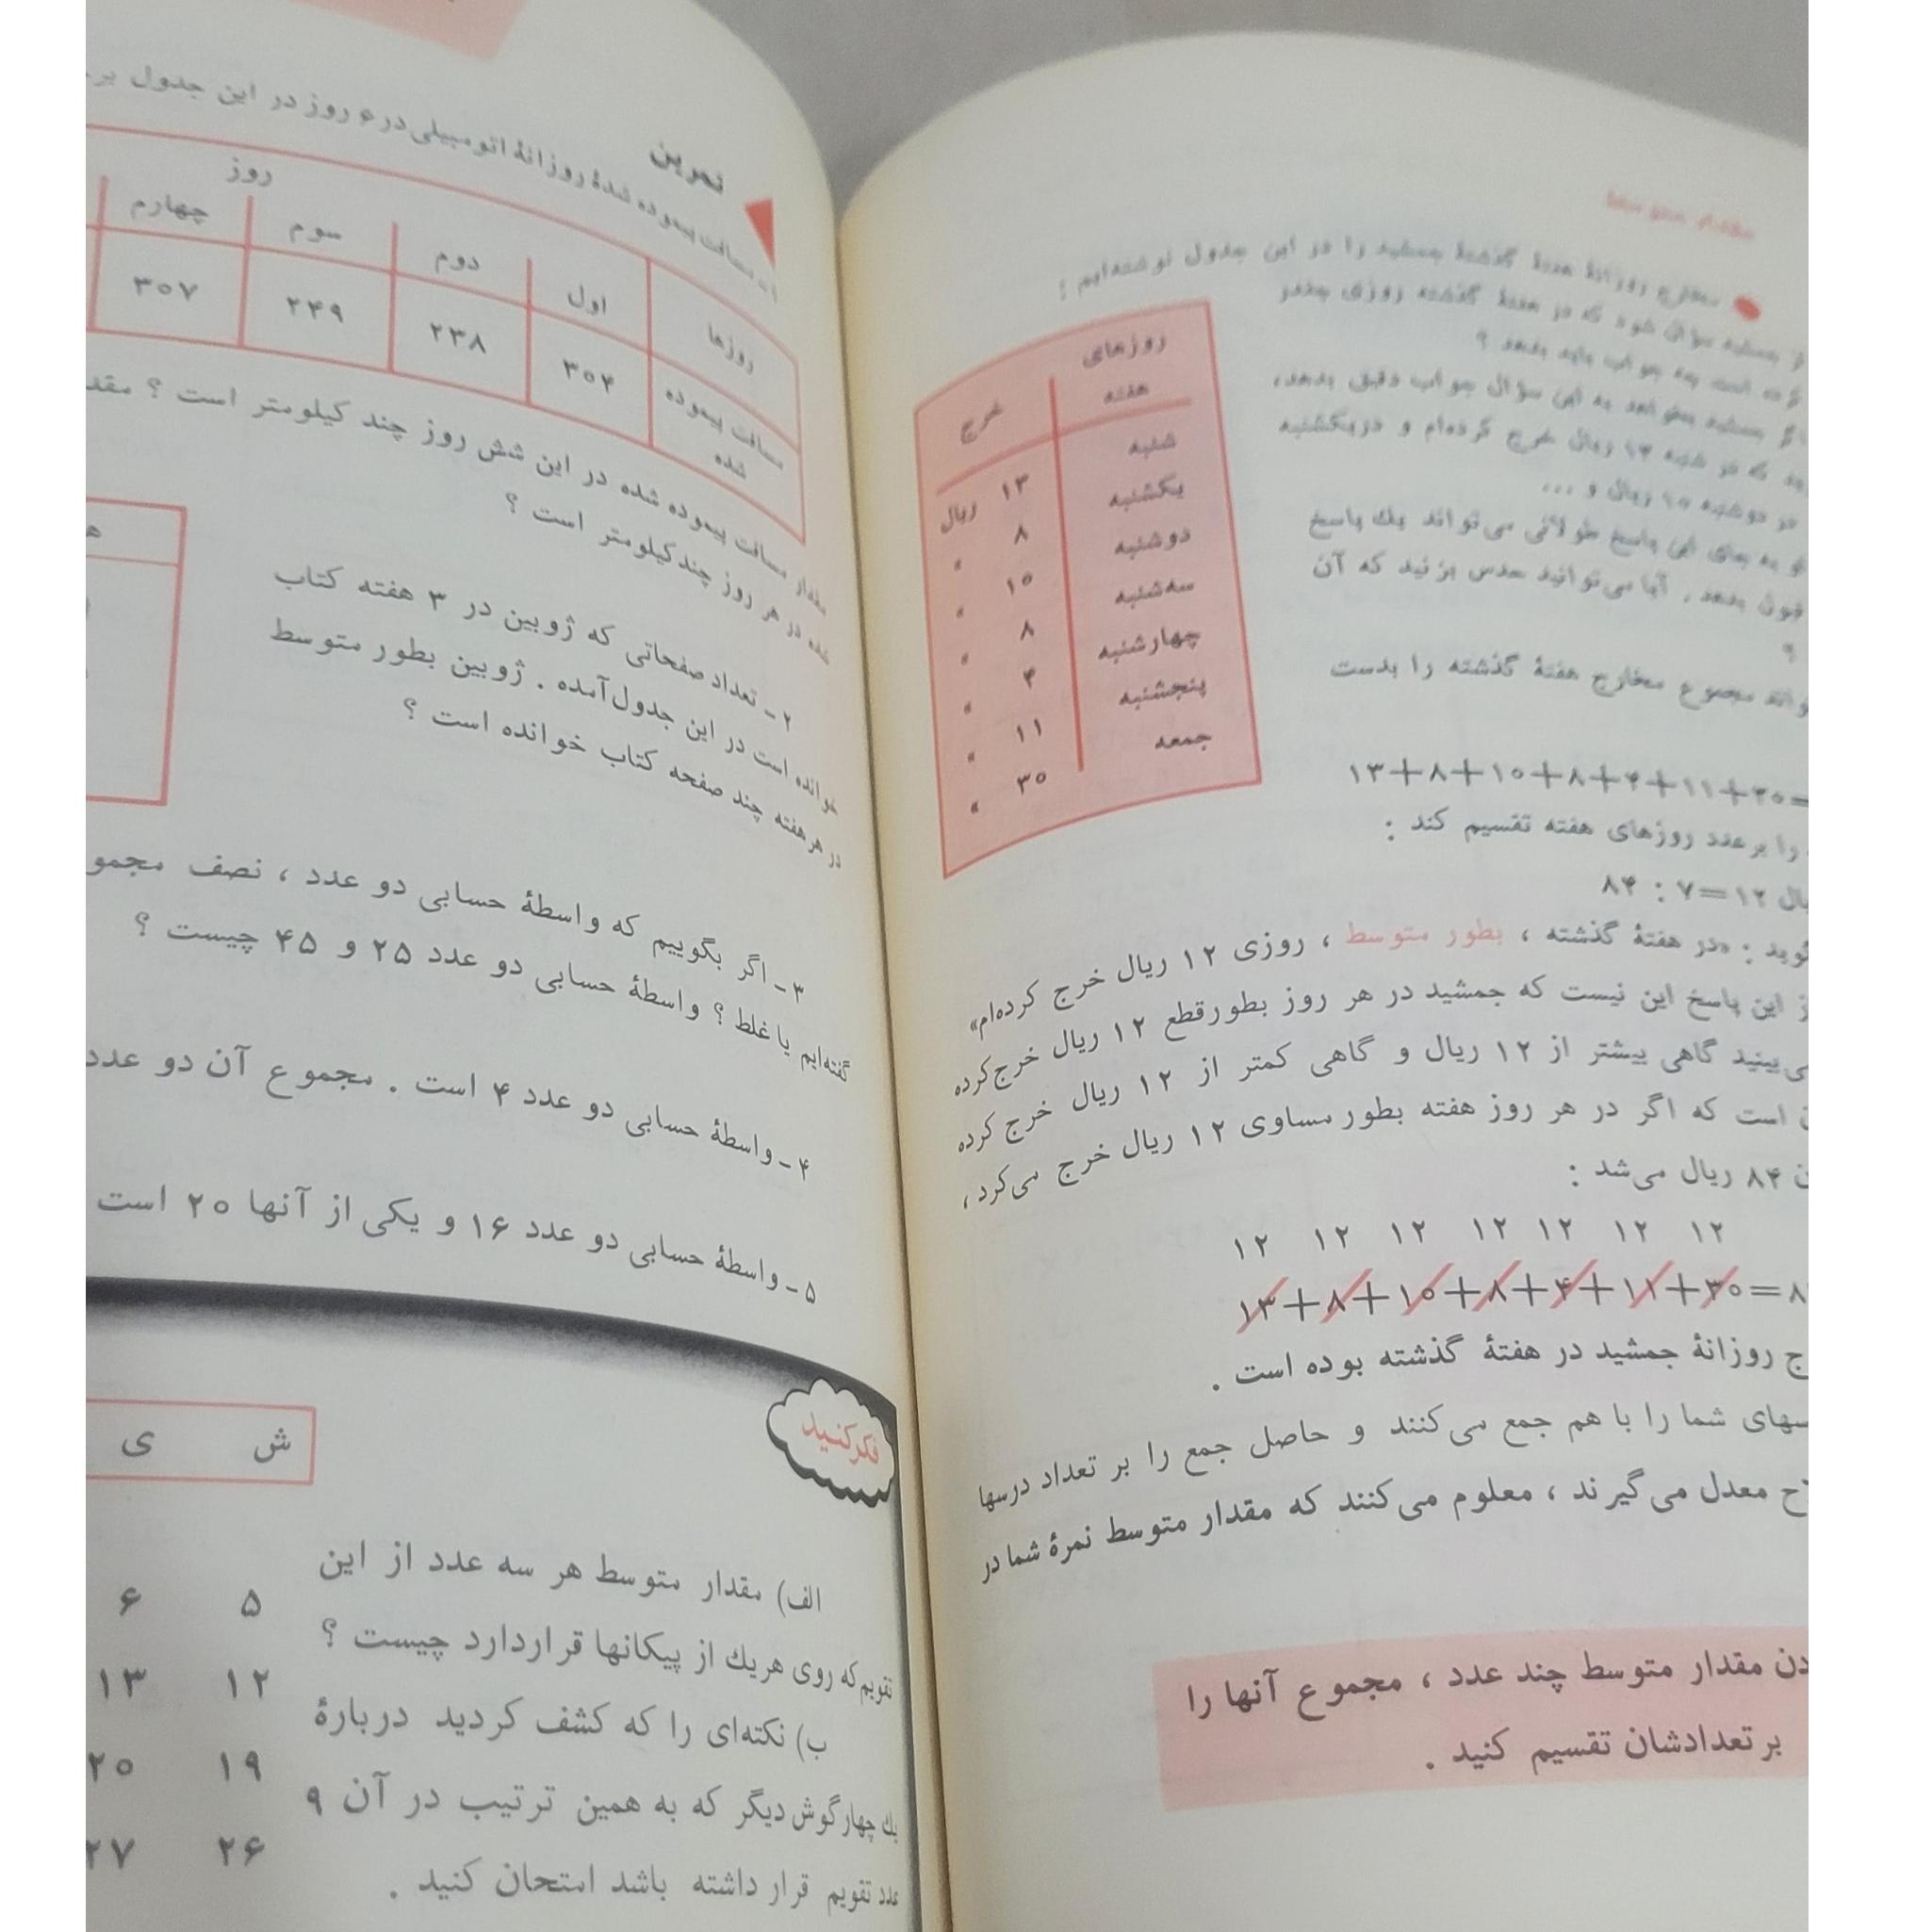 مقدار متوسط
مخارج روزانهٔ هفتهٔ گذشتهٔ جمشید را در این جدول نوشته‌ایم :
از جمشید سؤال شود که در هفتهٔ گذشته روزی چقدر
کرده است چه جواب باید بدهد ؟
اگر جمشید بخواهد به این سؤال جواب دقیق بدهد،
که در شنبه ۱۳ ریال خرج کرده‌ام و در یکشنبه
در دوشنبه ۱۰ ریال و ...
به جای این پاسخ طولانی می‌تواند یك پاسخ
بدهد . آیا می‌توانید حدس بزنید که آن
؟
مجموع مخارج هفتهٔ گذشته را بدست
۱۳+۸+۱۰+۸+۴+۱۱+۳۰=
را بر عدد روزهای هفته تقسیم کند :
۸۴ : ۷=۱۲
روزهای هفته
خرج
شنبه
یکشنبه
دوشنبه
سه‌شنبه
چهارشنبه
پنجشنبه
جمعه
۱۳ ریال
۸ »
۱۰ »
۸ »
۴ »
۱۱ »
۳۰ »
: «در هفتهٔ گذشته ، بطور متوسط ، روزی ۱۲ ریال خرج کرده‌ام»
این پاسخ این نیست که جمشید در هر روز بطورقطع ۱۲ ریال خرج‌کرده
گاهی بیشتر از ۱۲ ریال و گاهی کمتر از ۱۲ ریال خرج کرده
است که اگر در هر روز هفته بطور مساوی ۱۲ ریال خرج می‌کرد ،
۸۴ ریال می‌شد :
۱۲ ۱۲ ۱۲ ۱۲ ۱۲ ۱۲ ۱۲
۱۳+۸+۱۰+۸+۴+۱۱+۳۰=۸
ج روزانهٔ جمشید در هفتهٔ گذشته بوده است .
سهای شما را با هم جمع می‌کنند و حاصل جمع را بر تعداد درسها
ح معدل می‌گیرند ، معلوم می‌کنند که مقدار متوسط نمرهٔ شما در
دن مقدار متوسط چند عدد ، مجموع آنها را
بر تعدادشان تقسیم کنید .
تمرین
۱ - مسافت پیموده شدهٔ روزانهٔ اتومبیلی در ۶ روز در این جدول
روز
روزها
اول
دوم
سوم
چهارم
مسافت پیموده شده
۳۰۴
۲۳۸
۲۴۹
۳۰۷
مقدار مسافت پیموده شده در این شش روز چند کیلومتر است ؟ مقد
شده در هر روز چندکیلومتر است ؟
۲ - تعداد صفحاتی که ژوبین در ۳ هفته کتاب
خوانده است در این جدول آمده . ژوبین بطور متوسط
در هر هفته چند صفحه کتاب خوانده است ؟
۳ - اگر بگوییم که واسطهٔ حسابی دو عدد ، نصف مجمو
گفته‌ایم یا غلط ؟ واسطهٔ حسابی دو عدد ۲۵ و ۴۵ چیست ؟
۴ - واسطهٔ حسابی دو عدد ۴ است . مجموع آن دو عدد
۵ - واسطهٔ حسابی دو عدد ۱۶ و یکی از آنها ۲۰ است
فکر کنید
ش ی
الف) مقدار متوسط هر سه عدد از این
تقویم‌که روی هریك از پیکانها قراردارد چیست ؟
ب) نکته‌ای را که کشف کردید دربارهٔ
یك چهارگوش دیگر که به همین ترتیب در آن ۹
عدد تقویم قرار داشته باشد امتحان کنید .
۵ ۶
۱۲ ۱۳
۱۹ ۲۰
۲۶ ۲۷